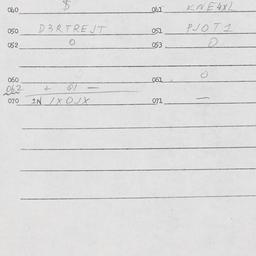 060 $ 061 KNE4XL
050 D3RTREJT 051 PJOT1
052 0 053 0
060 061 0
062 + 01 —
070 1N IXOJX 071 —